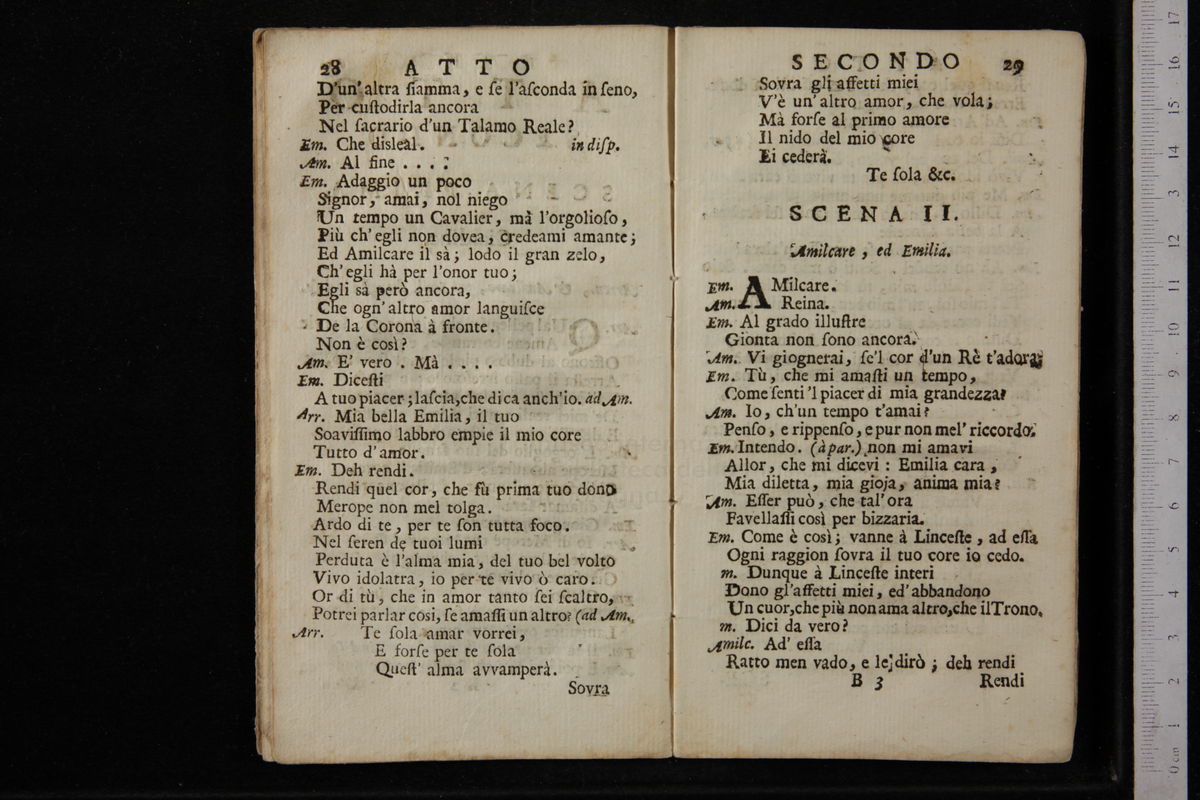 28 ATTO
D'un'altra fiamma, e ſe l'aſconda in ſeno,
Per cuſtodirla ancora
Nel ſacrario d'un Talamo Reale?
Em. Che disleal. in diſp.
Am. Al fine . . . .
Em. Adaggio un poco
Signor, amai, nol niego
Un tempo un Cavalier, mà l'orgolioſo,
Più ch'egli non dovea, credeami amante;
Ed Amilcare il sà; lodo il gran zelo,
Ch'egli hà per l'onor tuo;
Egli sà però ancora,
Che ogn'altro amor languiſce
De la Corona à fronte.
Non è così?
Am. E' vero . Mà . . . .
Em. Diceſti
A tuo piacer; laſcia, che dica anch'io. ad Am.
Arr. Mia bella Emilia, il tuo
Soaviſſimo labbro empie il mio core
Tutto d'amor.
Em. Deh rendi.
Rendi quel cor, che fù prima tuo dono
Merope non mel tolga.
Ardo di te, per te ſon tutta foco.
Nel ſeren de tuoi lumi
Perduta è l'alma mia, del tuo bel volto
Vivo idolatra, io per te vivo ò caro.
Or di tù, che in amor tanto ſei ſcaltro,
Potrei parlar cosi, ſe amaſſi un altro? (ad Am.
Arr. Te ſola amar vorrei,
E forſe per te ſola
Queſt' alma avvamperà.
Sovra
SECONDO 29
Sovra gli affetti miei
V'è un'altro amor, che vola;
Mà forſe al primo amore
Il nido del mio core
Ei cederà.
Te ſola &c.
SCENA II.
Amilcare, ed Emilia.
Em. AMilcare.
Am. Reina.
Em. Al grado illuſtre
Gionta non ſono ancora.
Am. Vi giognerai, ſe'l cor d'un Rè t'adora;
Em. Tù, che mi amaſti un tempo,
Come ſenti 'l piacer di mia grandezza?
Am. Io, ch'un tempo t'amai?
Penſo, e rippenſo, e pur non mel' riccordo.
Em. Intendo. (à par.) non mi amavi
Allor, che mi dicevi : Emilia cara,
Mia diletta, mia gioja, anima mia?
Am. Eſſer può, che tal'ora
Favellaſſi così per bizzaria.
Em. Come è così; vanne à Linceſte, ad eſſa
Ogni raggion ſovra il tuo core io cedo.
m. Dunque à Linceſte interi
Dono gl'affetti miei, ed'abbandono
Un cuor, che più non ama altro, che il Trono.
m. Dici da vero?
Amilc. Ad' eſſa
Ratto men vado, e le dirò ; deh rendi
B 3 Rendi